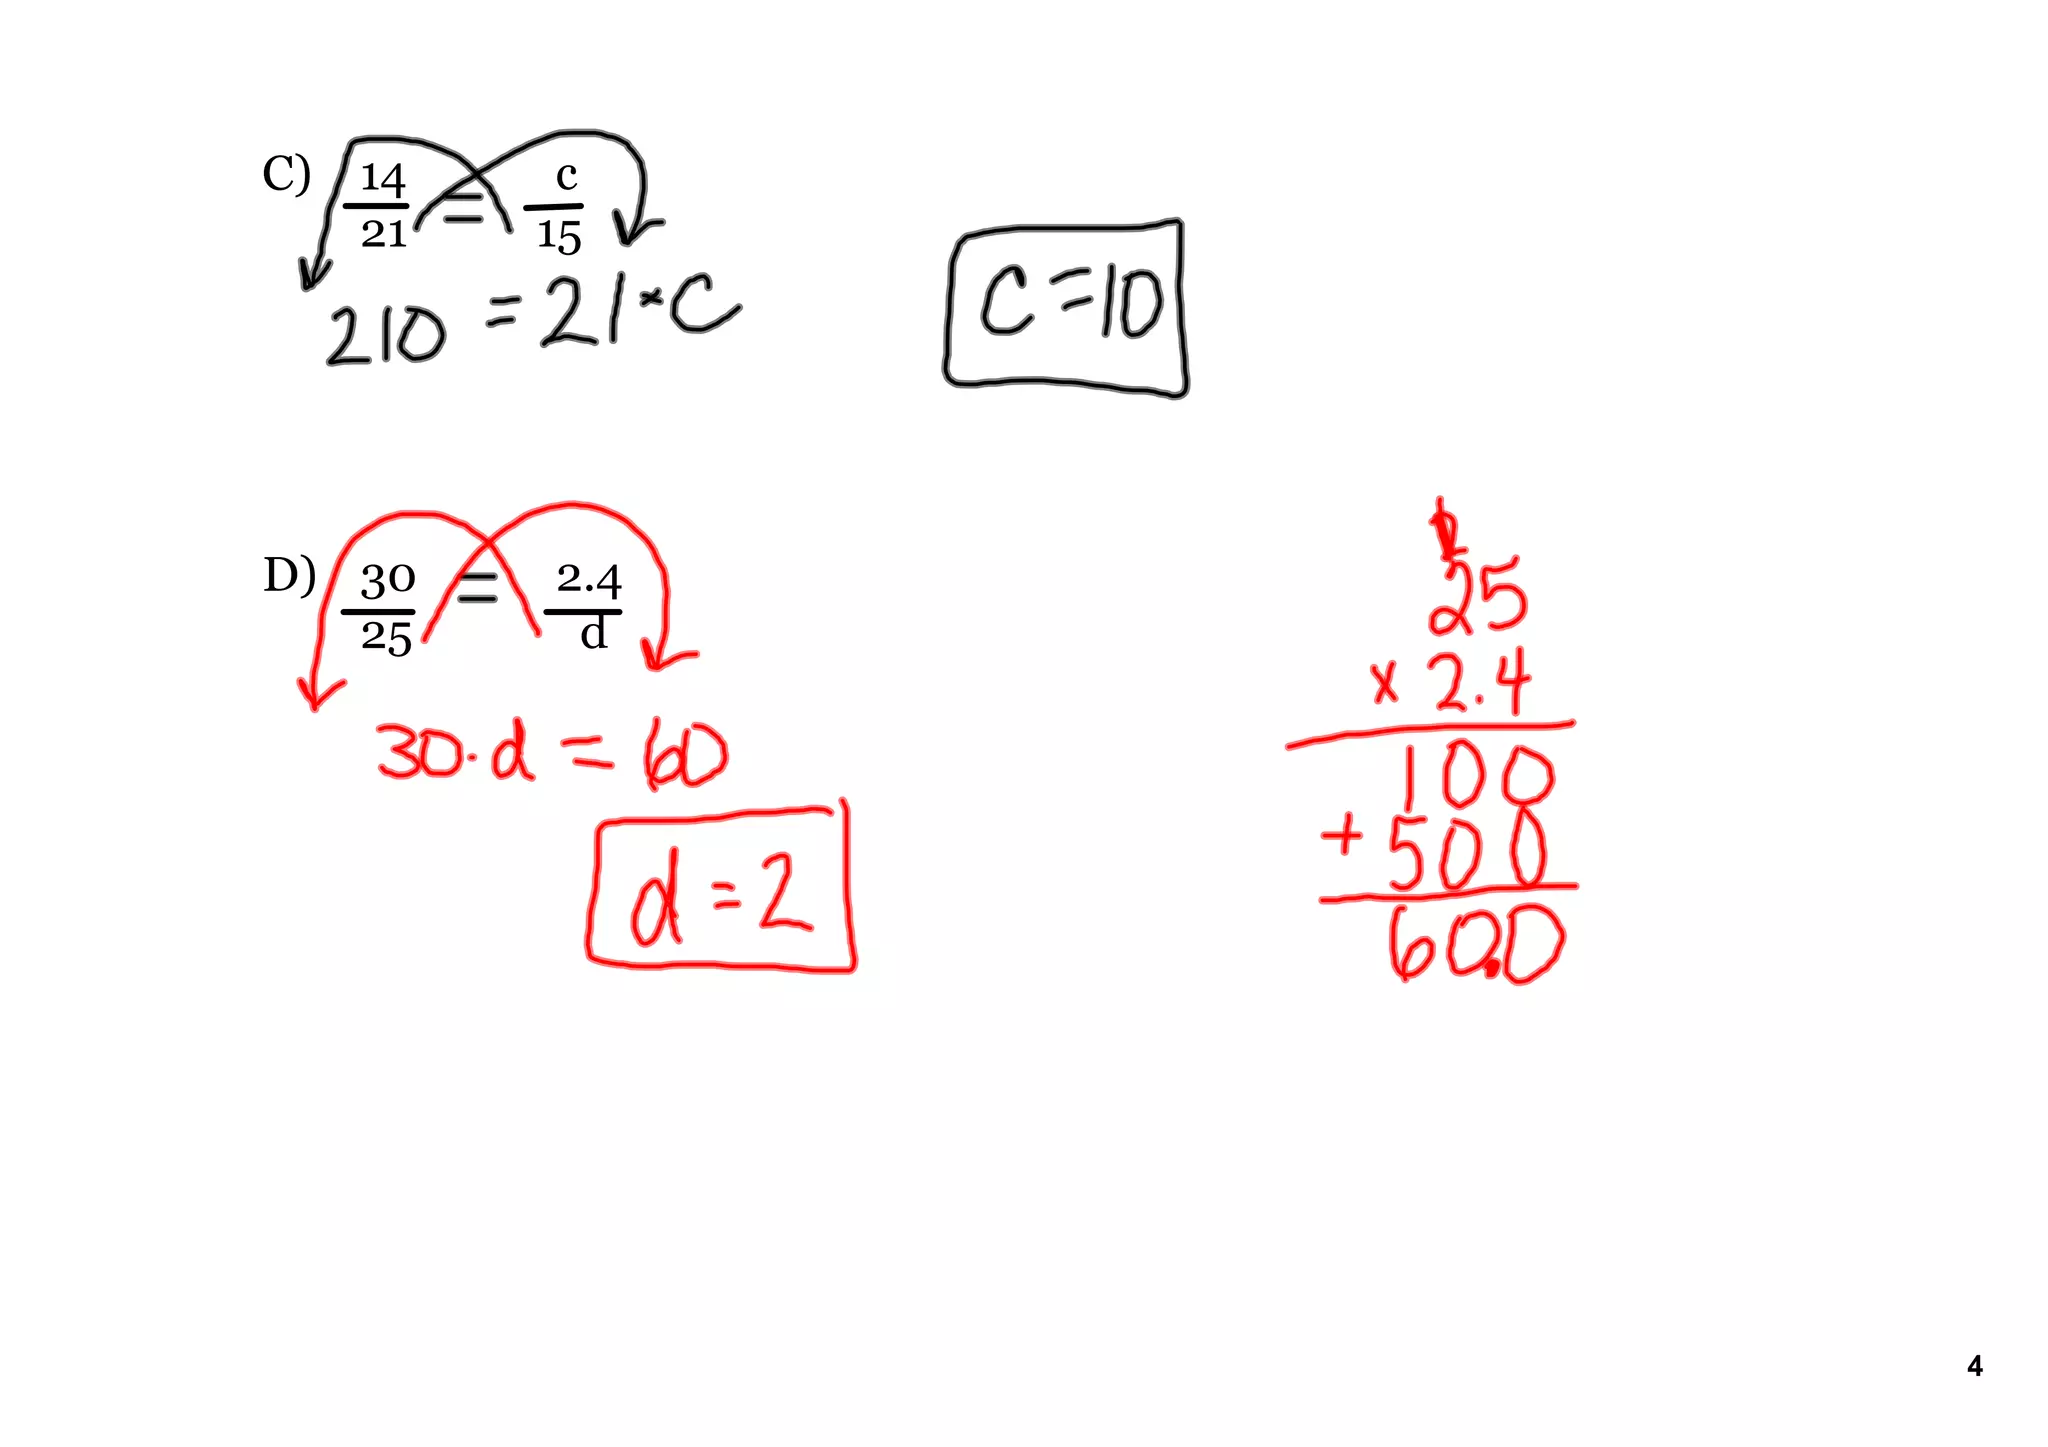 C) 14 = c
21 15
210 = 21 * C
C = 10
D) 30 = 2.4
25 d
30 · d = 60
d = 2
2
25
x 2.4
100
+ 500
60.0
4